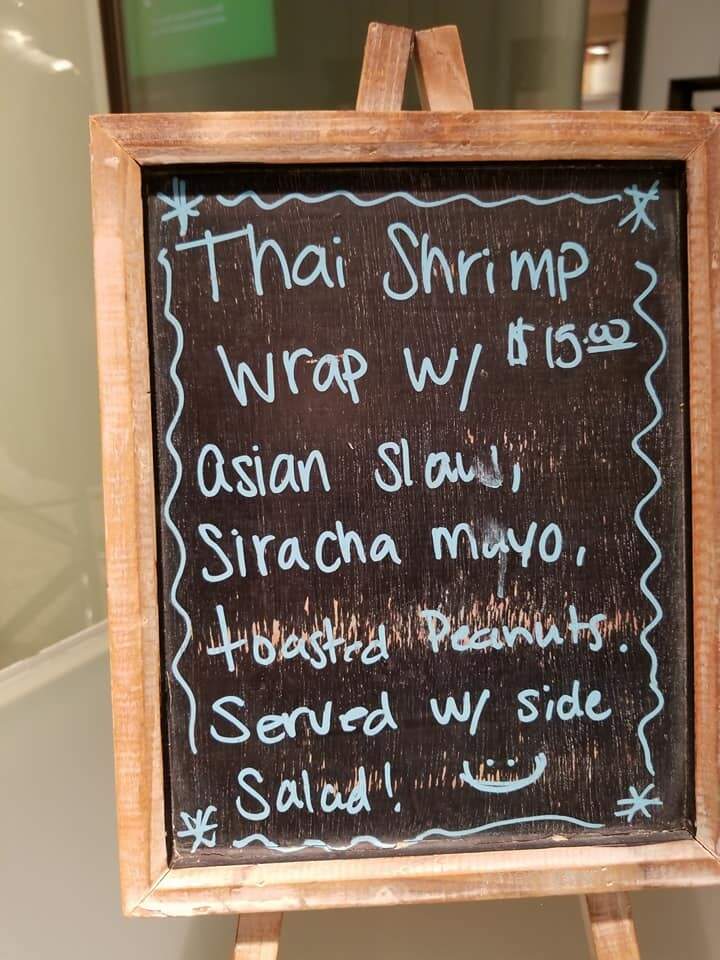 Thai Shrimp
Wrap w/ $15.00
asian slaw,
Siracha mayo,
toasted Peanuts.
Served w/ side
Salad!